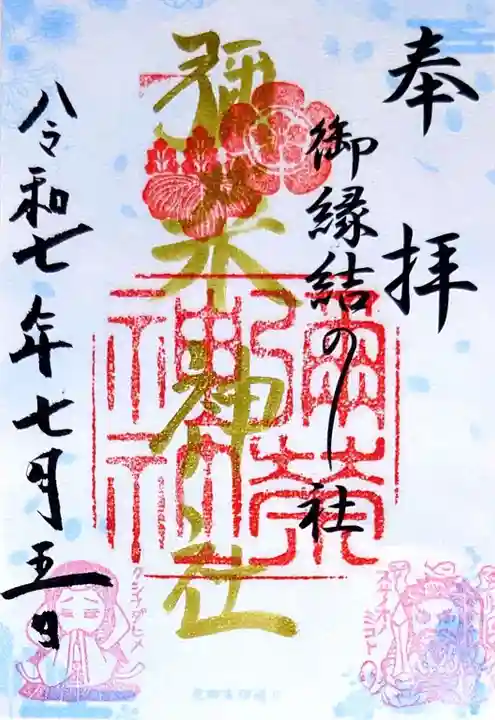 奉拝
御縁結の社
彌栄神社
彌榮
神社
令和七年七月五日
スサノオノ
ミコト
クシナダヒメ